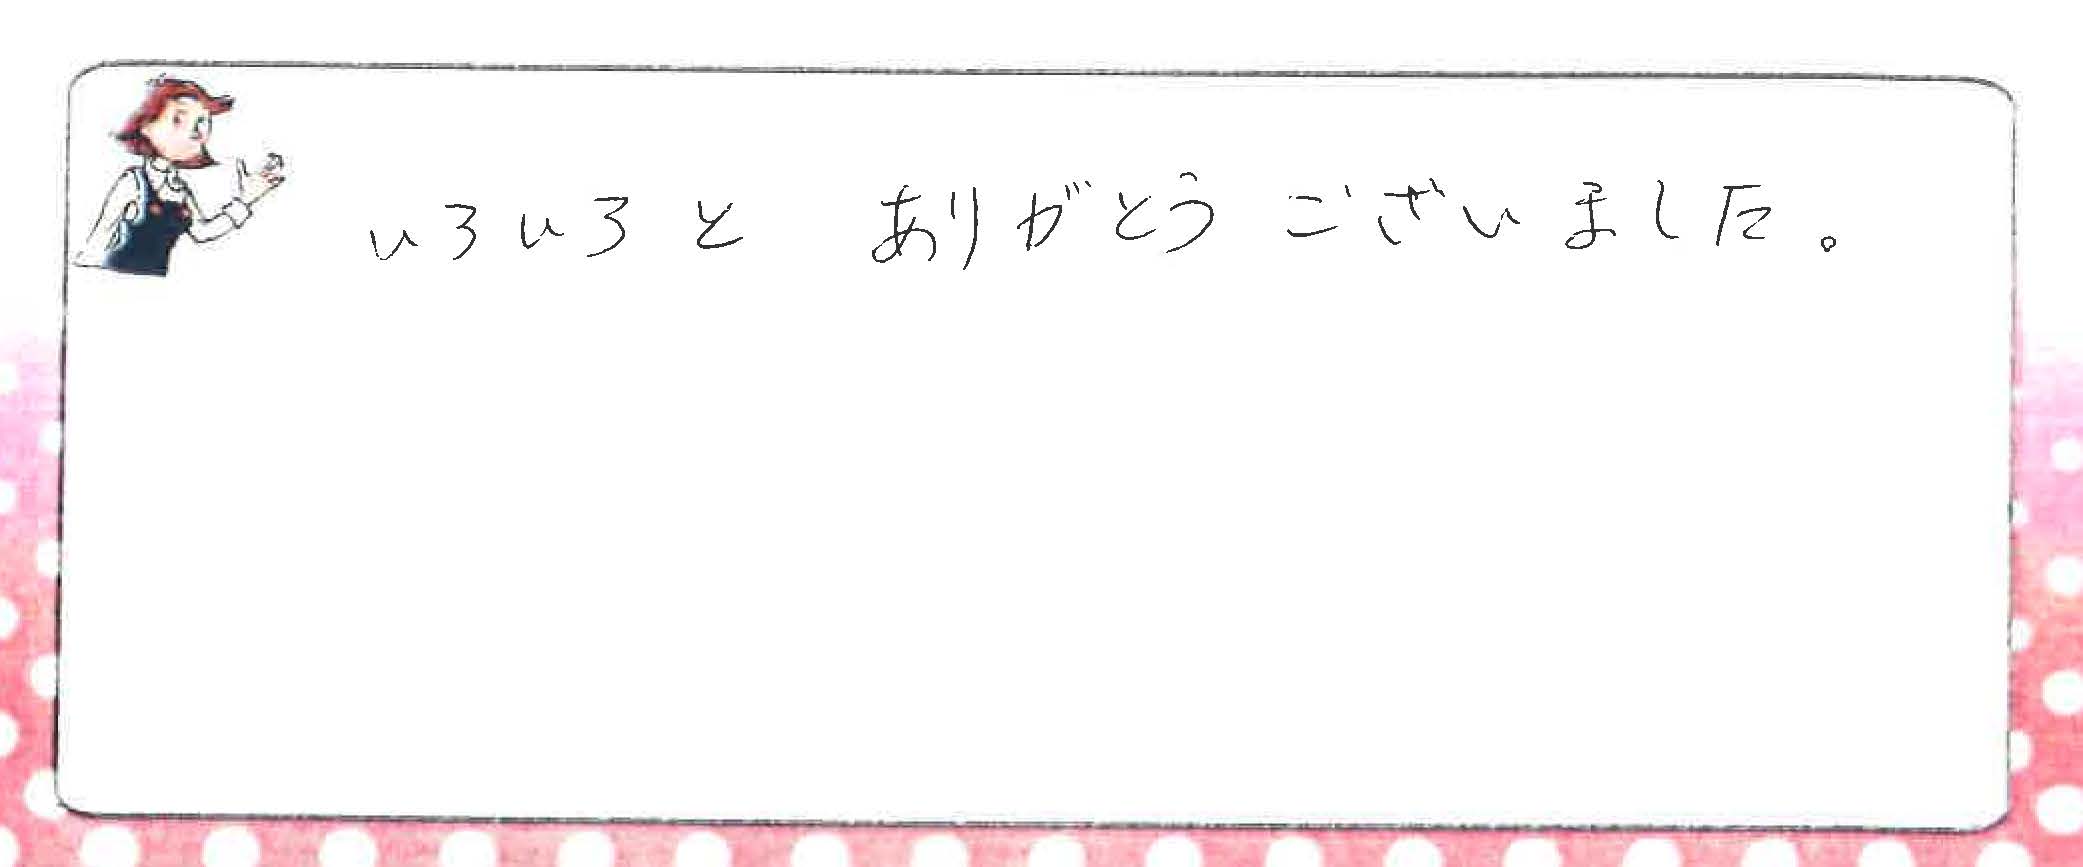 いろいろと ありがとうございました。